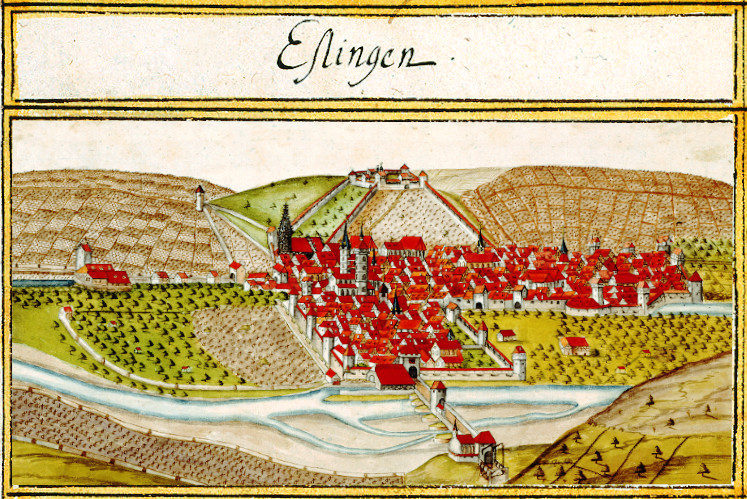 Eſlingen.